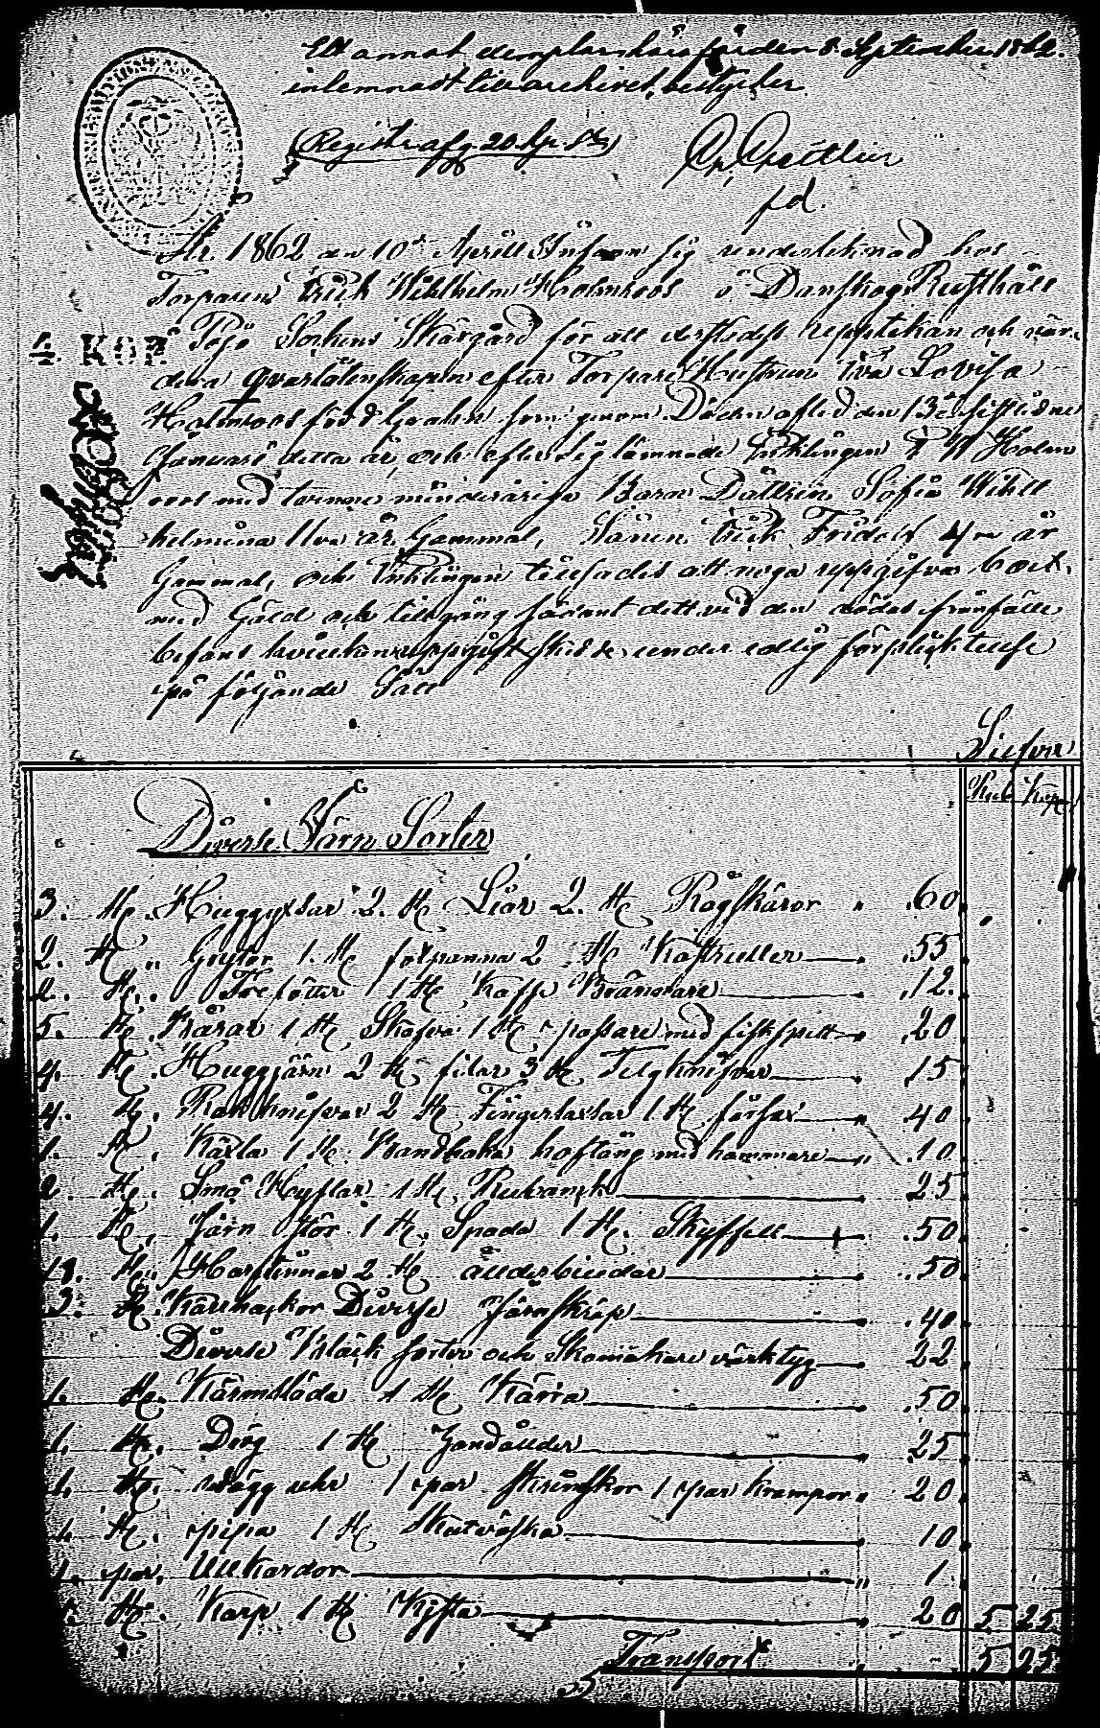 Ett annat exemplar häraf är den 8 September 1862.
inlemnadt till archivet, betyder
Registr. afg. 20 kp. Sr
fd.
År 1862 den 10de Aprill Infann sig underteknad hos
Torparen Erick Wilhelm Holmroos å Danskog Rusthåll
4. KOP.
i Pojo Sockens Skärgård för att derstädes uppteckna och vär-
dera qvarlåtenskapen efter Torpare Hustrun Eva Lovisa
Holmroos född Grahn som genom Döden afled den 13de sistlidne
Januari detta år, och efter sig lämnade Enklingen E W Holm
roos med tvenne minderåriga Barn Dottren Sofia Wilhel
helmina 11va år Gammal, Sånen Erick Fridolf 4ra år
Gammal, och Enklingen tillsades att noga uppgifva boet
med Gäld och tillgång sådant det vid den dödas frånfälle
befans hvilken uppgift skedde under edlig förpliktelse
på följande Sätt
Silfver
Rub. Kop.
Diverse Järn Sorter
3. st. Huggyxsar 2. st Liar 2. st Rågskäror " 60
2. st " Grytor 1. st panna 2 st Kaffi 55
2. st. Trefötter 1 st Kaffe Brännare 12.
5. st Nåvrar 1 st Skafva 1 st passare med fickspett 20
4. st. Huggjärn 2 st filar 3 st Telgknifvar 15
4. st. Rakknifvar 2 st Fingerlaxsar 1 st 40
1. st. Käxla 1 st Bandhake hoftång med hammare 10
2. st. Små Hyflar 1 st Rubank 25
1. st. Järn Stör 1 st Spade 1 st. Skyffell 50
st. Harfpinnar 2 st 50
3. st. Kärrhackor Diverse Järnskråp 40
Diverse Bläck sorter och Skomakare värktyg 22
1. st. Kärmsläda 1 st Kärra 50
1. st. Dörj 1 st 25
1. st. Vägg uhr 1 par Skrinskor 1 par Krampor 20
1. st. pipa 1 st Skutväska 10
1. par. Ullkardor 1
1. st. Korp 1 st Kijsta 20 5 25
Transport 5 25